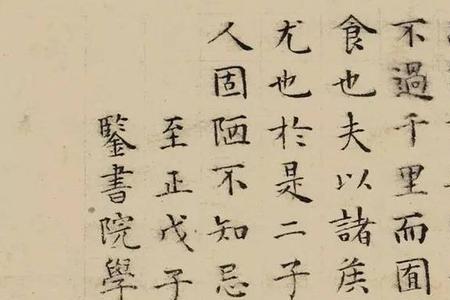 不過千里而囿
食也夫以諸矦
尤也於是二子
人固陋不知忌
至正戊子
鋻書院學